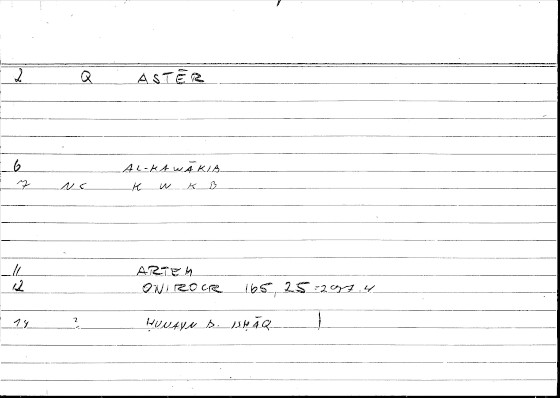 2 Q ASTĒR
6 AL-KAWĀKIB
7 NC K W K B
11 ARTEM
12 ONIROCR 165, 25
14 ? ḤUNAYN B. ISḤĀQ